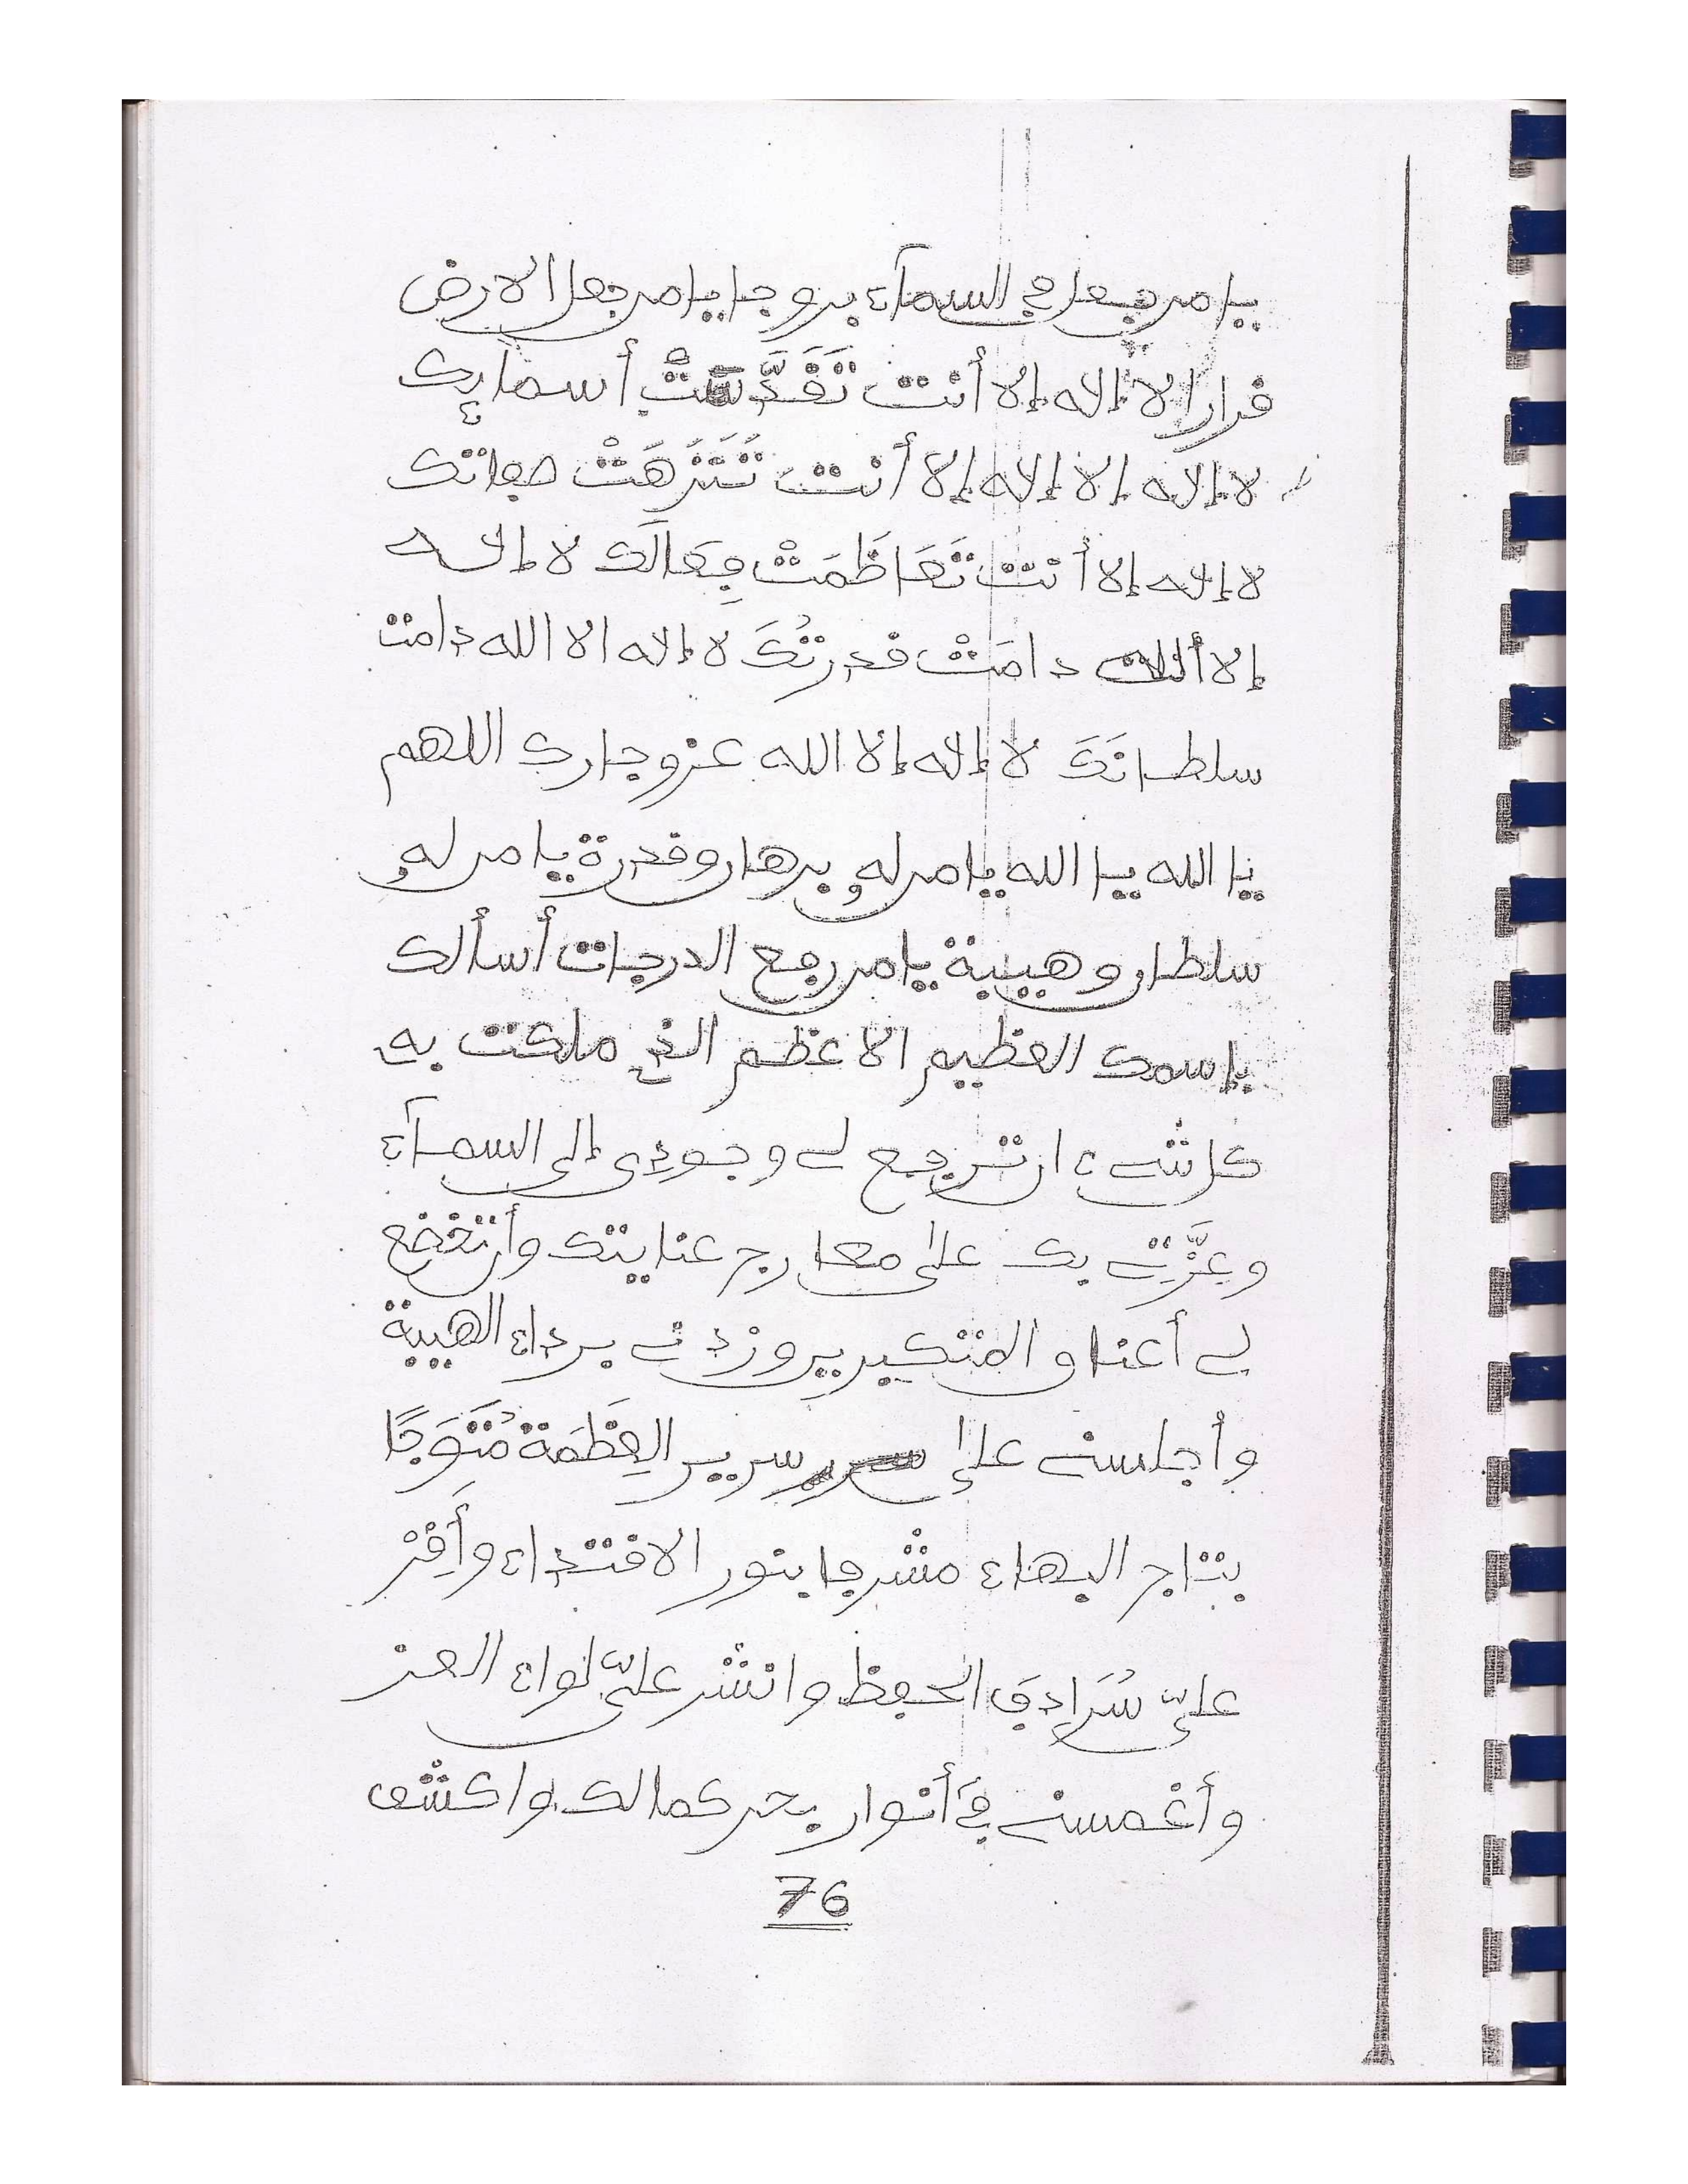 يا من جعل في السمآء بروجا يا من جعل الارض
قرارا لا إله إلا أنت تَقَدَّسَتْ أسمايك
لا إله إلا إله إلا أنت تَنَزَهَتْ صفاتك
لا إله إلا أنت تَعَاظَمَتْ فِعَالَك لا إله
إلا أنت دامَتْ قدرتُكَ لا إله الا الله دامت
سلطانَكَ لا إله إلا الله عز وجارك اللهم
يا الله يا الله يا من له برهان وقدرة يا من له
سلطان وهيبة يا من رفع الدرجات أسألك
بإسمك العظيم الاعظم الذي ملكت به
كل شيء ان ترفع لي وجودي إلى السمآء
وعِزَّتي بك على معارج عنايتك وأن تخضع
لي أعناق المتكبرين وزدني برداء الهيبة
وأجلسني على سرير العِظَمَة مُتَوَجًا
بتاج البهاء مشرفا بنور الاقتداء وأَفِز
عليّ سُرَادِق الحفظ وانشر عليّ لواء العز
وأغمسني في أنوار بحر كمالك واكشف
76